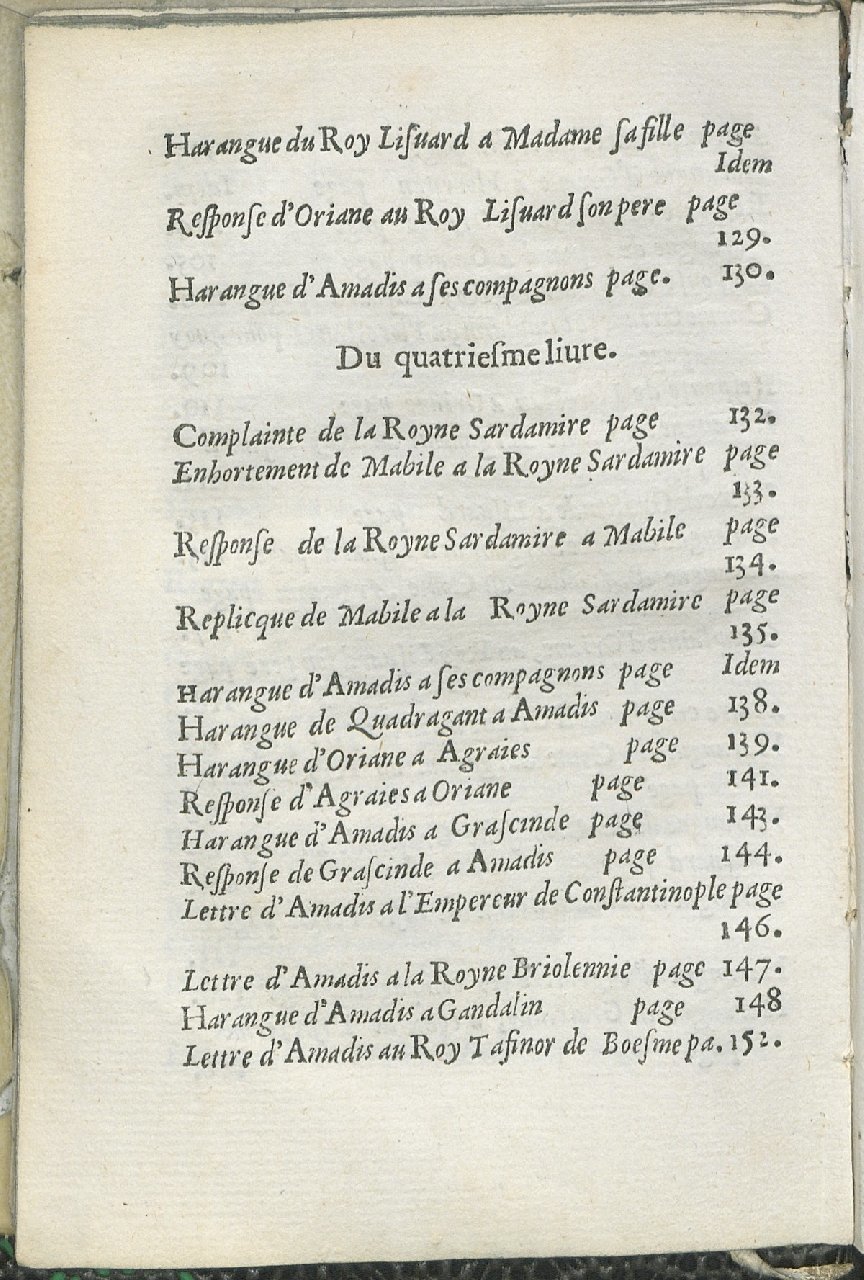 Harangue du Roy Liſuard a Madame ſa fille page
Idem
Reſponſe d'Oriane au Roy Liſuard ſon pere page
129.
Harangue d'Amadis a ſes compagnons page. 130.
Du quatrieſme liure.
Complainte de la Royne Sardamire page 132.
Enhortement de Mabile a la Royne Sardamire page
133.
Reſponſe de la Royne Sardamire a Mabile page
134.
Replicque de Mabile a la Royne Sardamire page
135.
Harangue d'Amadis a ſes compagnons page Idem
Harangue de Quadragant a Amadis page 138.
Harangue d'Oriane a Agraies page 139.
Reſponſe d'Agraies a Oriane page 141.
Harangue d'Amadis a Graſcinde page 143.
Reſponſe de Graſcinde a Amadis page 144.
Lettre d'Amadis a l'Empereur de Conſtantinople page
146.
Lettre d'Amadis a la Royne Briolennie page 147.
Harangue d'Amadis a Gandalin page 148
Lettre d'Amadis au Roy Tafinor de Boeſme pa. 152.